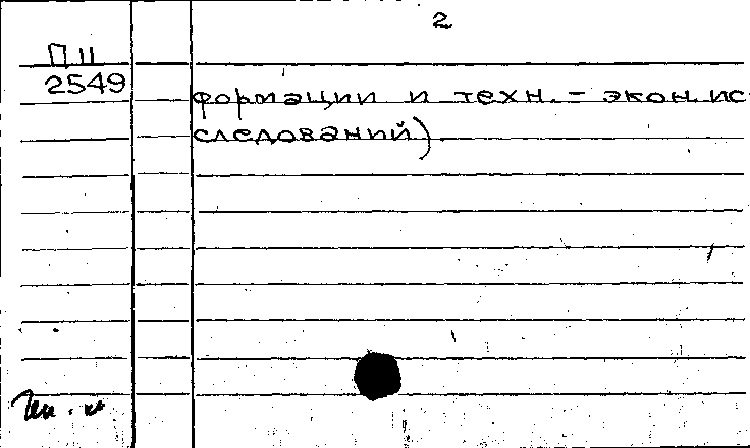 2
П 11
2549
формации и техн. - экон. ис
следований)